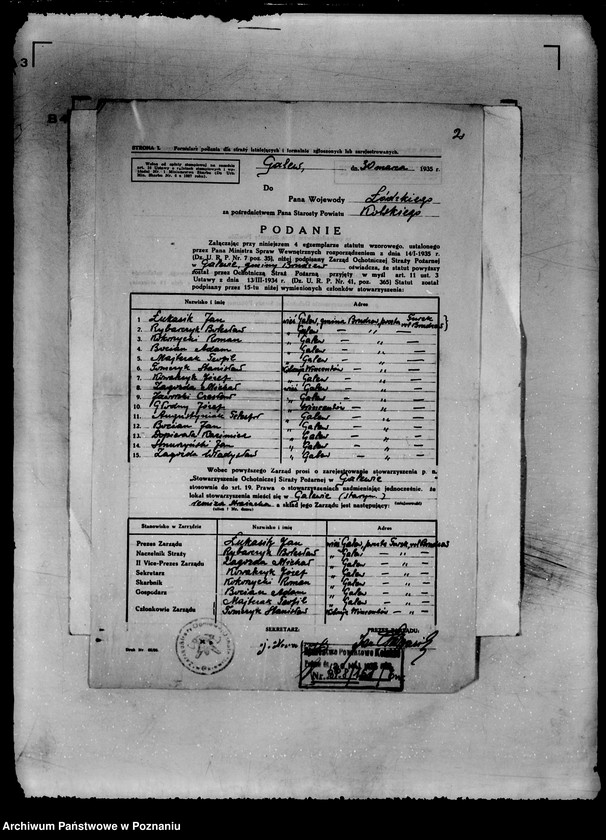 2
STRONA I. Formularz podania dla straży istniejących i formalnie zgłoszonych lub zarejestrowanych.
Galew, dn. 30 marca 1935 r.
Do
Pana Wojewody Łódzkiego
za pośrednictwem Pana Starosty Powiatu Kolskiego
PODANIE
Załączając przy niniejszem 4 egzemplarze statutu wzorowego, ustalonego
przez Pana Ministra Spraw Wewnętrznych rozporządzeniem z dnia 14/I-1935 r.
(Dz. U. R. P. Nr. 7 poz. 35), niżej podpisany Zarząd Ochotniczej Straży Pożarnej
w Galewie, gminy Brudzew oświadcza, że statut powyższy
został przez Ochotniczą Straż Pożarną przyjęty w myśl art. 11 ust. 2
Ustawy z dnia 13/III-1934 r. (Dz. U. R. P. Nr. 41, poz. 365) Statut został
podpisany przez 15-tu niżej wymienionych członków stowarzyszenia:
Nazwisko i imię Adres
1 Łukasik Jan wieś Galew, gmina Brudzew, poczta Turek
2. Rybarczyk Bolesław " Galew — " —
3. Kokorycki Roman " Galew — " —
4. Bocian Adam " Galew — " —
5. Majtczak Teofil " Galew — " —
6. Tomczyk Stanisław — " —
7. Kowalczyk Józef " Galew — " —
8. Zagozda Michał wieś Galew — " —
9. Jaworski Czesław " Galew — " —
10. Głodny Józef " Wincentów — " —
11. Augustyniak " Galew — " —
12. Bocian Jan " Galew — " —
13. Dopierała Kazimierz " Galew — " —
14. Jan " Galew — " —
15. Zagozda Władysław " Galew — " —
Wobec powyższego Zarząd prosi o zarejestrowanie stowarzyszenia p. n.
„Stowarzyszenie Ochotniczej Straży Pożarnej w Galewie
stosownie do art. 19. Prawa o stowarzyszeniach nadmieniając jednocześnie, że
lokal stowarzyszenia mieści się w Galewie (starym)
remiza strażacka a skład jego Zarządu jest następujący:
(ulica i Nr. domu)
Stanowisko w Zarządzie Nazwisko i imię Adres
Prezes Zarządu Łukasik Jan wieś Galew, poczta Turek
Naczelnik Straży Rybarczyk Bolesław " Galew — " —
II Vice-Prezes Zarządu Zagozda Michał " Galew — " —
Sekretarz Kowalczyk Józef " Galew — " —
Skarbnik Kokorycki Roman " Galew — " —
Gospodarz Bocian Adam " Galew — " —
Majtczak Teofil " Galew — " —
Członkowie Zarządu Tomczyk Stanisław — " —
SEKRETARZ: PREZES ZARZĄDU:
Archiwum Państwowe w Poznaniu